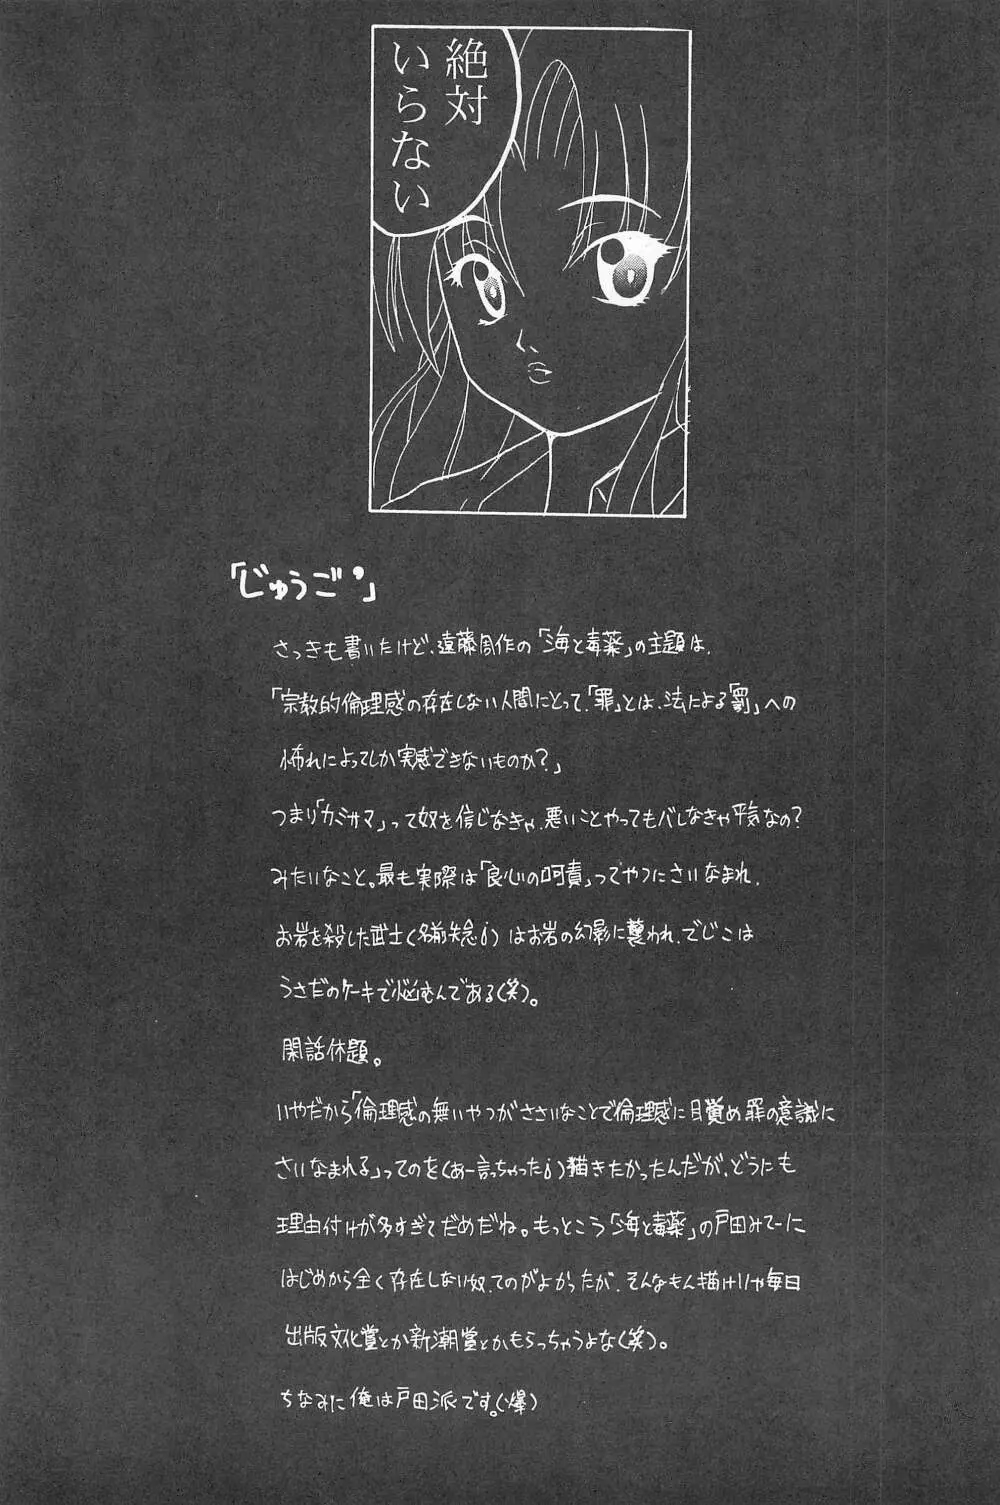 絶対
いらない
「じゅうご’」
さっきも書いたけど、遠藤周作の「海と毒薬」の主題は、
「宗教的倫理感の存在しない人間にとって、「罪」とは、法による「罰」への
怖れによってしか実感できないものか?」
つまり「カミサマ」って奴を信じなきゃ、悪いことやってもバレなきゃ平気なの?
みたいなこと。最も実際は「良心の呵責」ってやつにさいなまれ、
お岩を殺した武士(名前失念;)はお岩の幻影に襲われ、でじこは
うさだのケーキで悩むんである(笑)。
閑話休題。
いやだから「倫理感の無いやつがささいなことで倫理感に目覚め罪の意識に
さいなまれる」ってのを(あー言っちゃった;)描きたかったんだが、どうにも
理由付けが多すぎてだめだね。もっとこう「海と毒薬」の戸田みてーに
はじめから全く存在しない奴、てのがよかったが、そんなもん描けりゃ毎日
出版文化賞とか新潮賞とかもらっちゃうよな(笑)。
ちなみに俺は戸田派です。(爆)